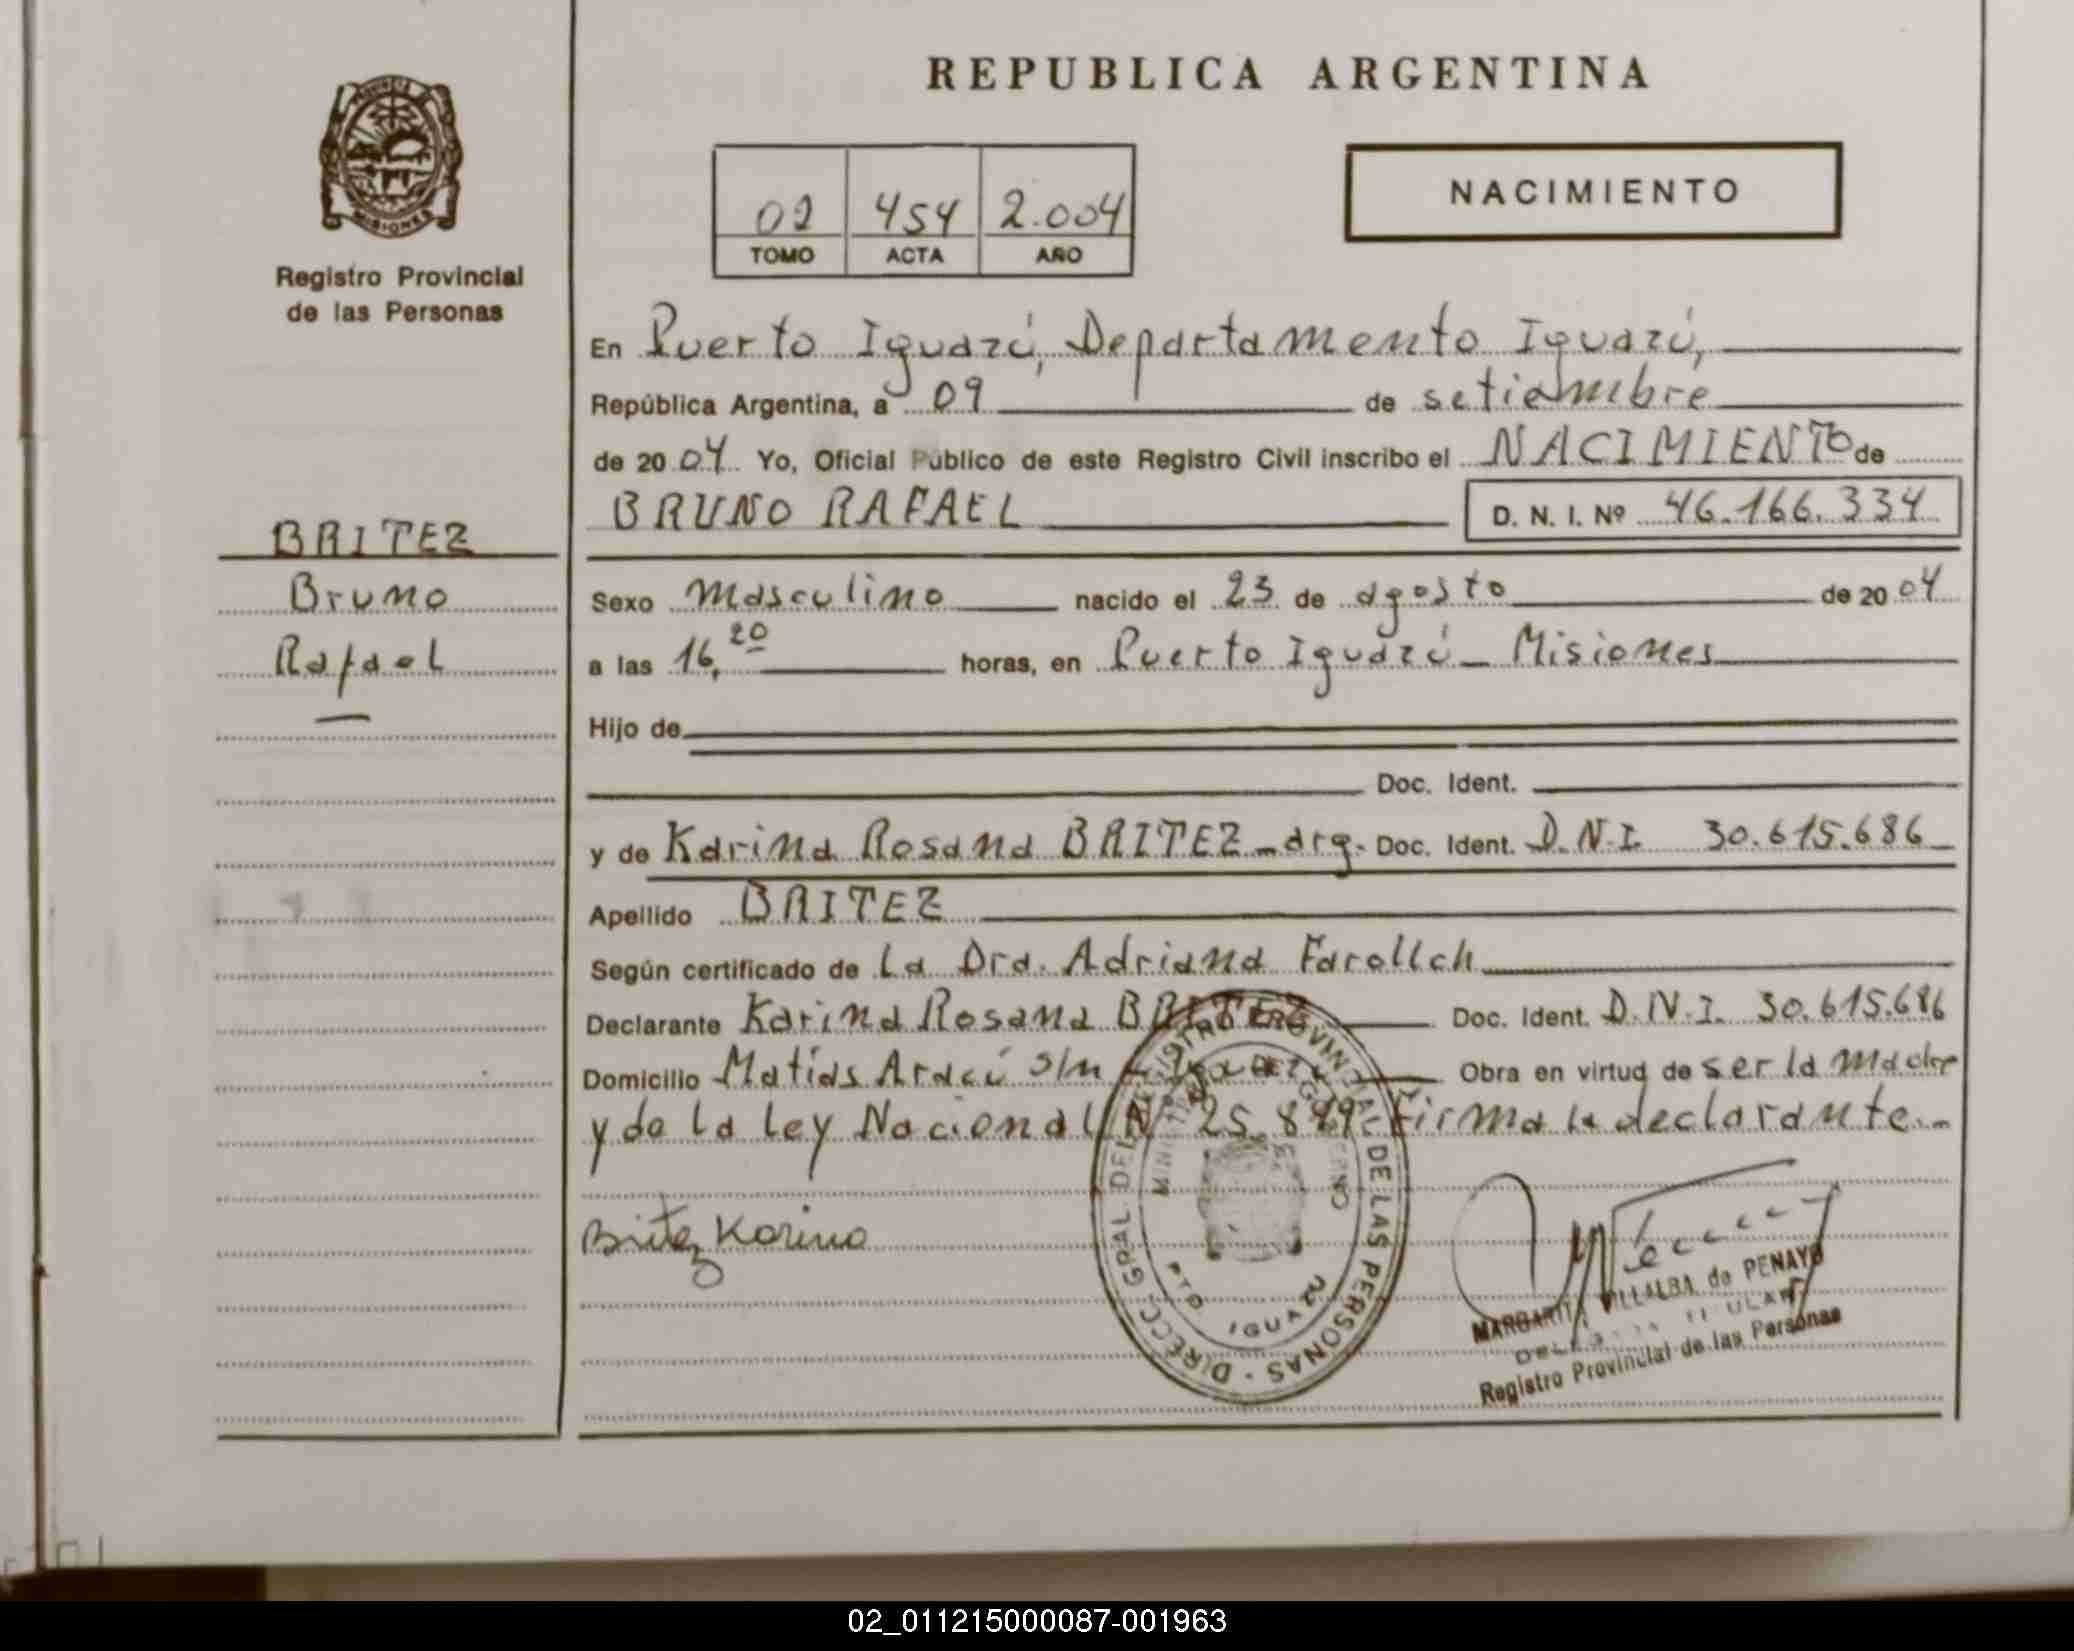 REPUBLICA ARGENTINA
PROVINCIA DE
MISIONES
Registro Provincial
de las Personas
02 454 2.004
TOMO ACTA AÑO
NACIMIENTO
En Puerto Iguazú, Departamento Iguazú,
República Argentina, a 09 de setiembre
de 2004 Yo, Oficial Público de este Registro Civil inscribo el NACIMIENTO de
BRUNO RAFAEL D. N. I. Nº 46.166.334
BRITEZ
Bruno
Rafael
Sexo masculino nacido el 23 de agosto de 2004
a las 16,20 horas, en Puerto Iguazú - Misiones
Hijo de
Doc. Ident.
y de Karina Rosana BRITEZ - arg. Doc. Ident. D.N.I. 30.615.686
Apellido BRITEZ
Según certificado de La Dra. Adriana
Declarante Karina Rosana BRITEZ Doc. Ident. D.N.I. 30.615.686
Domicilio Matías Aracú s/n - Iguazú Obra en virtud de ser la madre
y de la Ley Nacional Nº 25.819. Firma la declarante.-
Britez Karina
DIRECC. GRAL DEL REGISTRO PROVINCIAL DE LAS PERSONAS
PTO IGUAZU
MARGARITA VILLALBA de PENAYO
DELEGADA TITULAR
Registro Provincial de las Personas
02_011215000087-001963